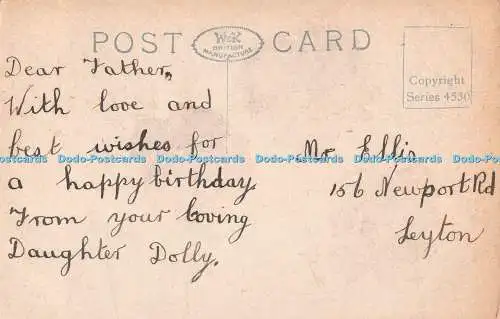 POST CARD
W&K
BRITISH
MANUFACTURE
Copyright
Series 4530
Dear Father,
With love and
best wishes for
a happy birthday.
From your loving
Daughter Dolly.
Mr Ellis
156 Newport Rd
Leyton
Dodo-Postcards Dodo-Postcards Dodo-Postcards Dodo-Postcards Dodo-Postcards